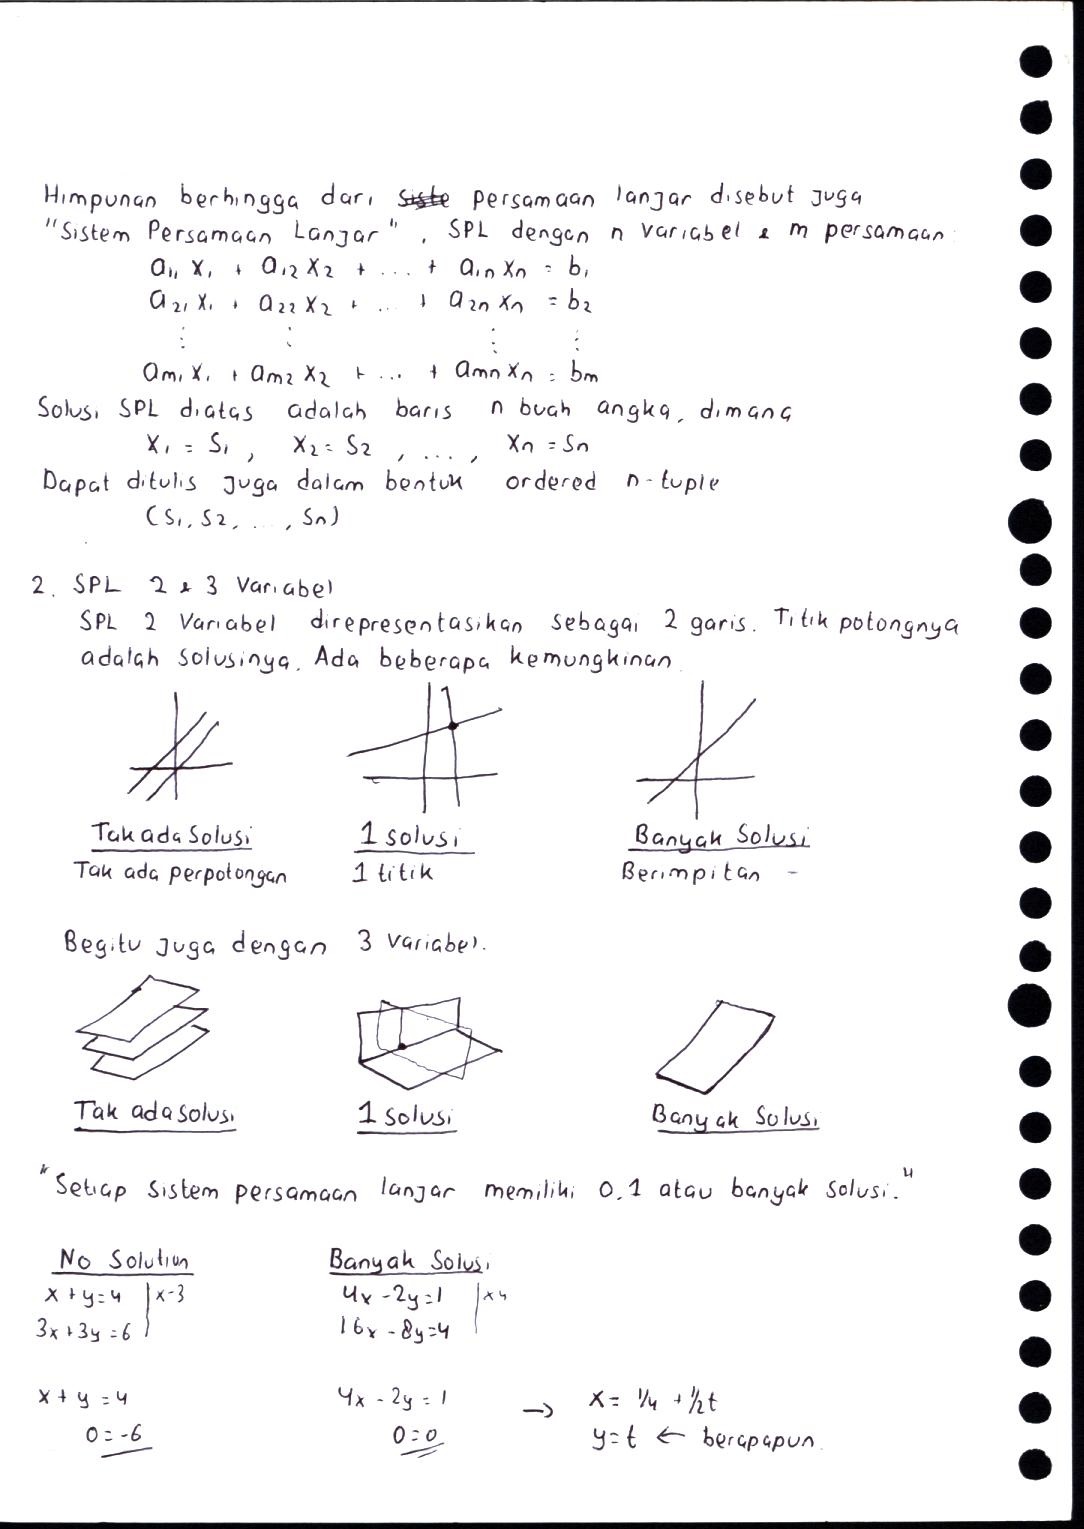 Himpunan berhingga dari siste persamaan lanjar disebut juga
"Sistem Persamaan Lanjar". SPL dengan n variabel & m persamaan:
a₁₁ x₁ + a₁₂ x₂ + ... + a₁n xn = b₁
a₂₁ x₁ + a₂₂ x₂ + ... + a₂n xn = b₂
⋮ ⋮ ⋮ ⋮
am₁ x₁ + am₂ x₂ + ... + amn xn = bm
Solusi SPL diatas adalah baris n buah angka, dimana
x₁ = s₁, x₂ = s₂, ..., xn = sn
Dapat ditulis juga dalam bentuk ordered n-tuple
(s₁, s₂, ..., sn)
2. SPL 2 & 3 Variabel
SPL 2 Variabel direpresentasikan sebagai 2 garis. Titik potongnya
adalah solusinya. Ada beberapa kemungkinan.
Tak ada solusi 1 solusi Banyak Solusi
Tak ada perpotongan 1 titik Berimpitan -
Begitu juga dengan 3 variabel.
Tak ada solusi 1 solusi Banyak Solusi
"Setiap sistem persamaan lanjar memiliki 0,1 atau banyak solusi."
No Solution Banyak Solusi
x + y = 4 | x-3 4x - 2y = 1 | x4
3x + 3y = 6 | 16x - 8y = 4 |
x + y = 4 4x - 2y = 1 → x = 1/4 + 1/2t
0 = -6 0 = 0 y = t ← berapapun.